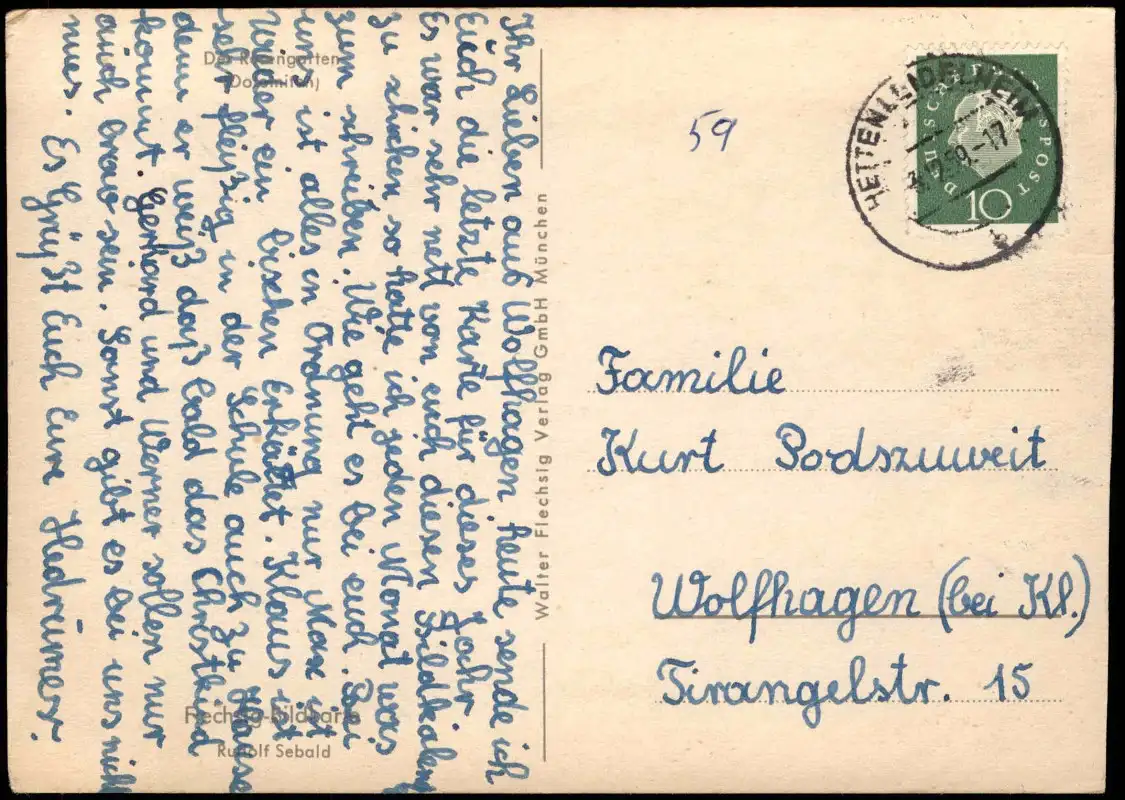 Der Rosengarten
(Dolomiten)
Ihr Lieben aus Wolfhagen heute sende ich
Euch die letzte Karte für dieses Jahr
Es war sehr nett von euch diesen Bildkalender
zu schicken so hatte ich jeden Monat was
zum schreiben. Wie geht es bei euch. Bei
uns ist alles in Ordnung nur Max ist
wider ein bischen Erkältet. Klaus ist
sehr fleißig in der Schule auch zu Hause
denn er weiß daß bald das Christkind
kommt. Gerhard und Werner sollen nur
auch brav sein. Sonst gibt es bei uns nicht
neues. Es Grüßt Euch Eure
Flechsig-Bildkarte
Rudolf Sebald
Walter Flechsig Verlag GmbH München
59
HETTENLEIDELHEIM
.12.59.-17
DEUTSCHE BUNDESPOST
10
Familie
Kurt Podszuweit
Wolfhagen (bei Kl.)
Tirangelstr. 15